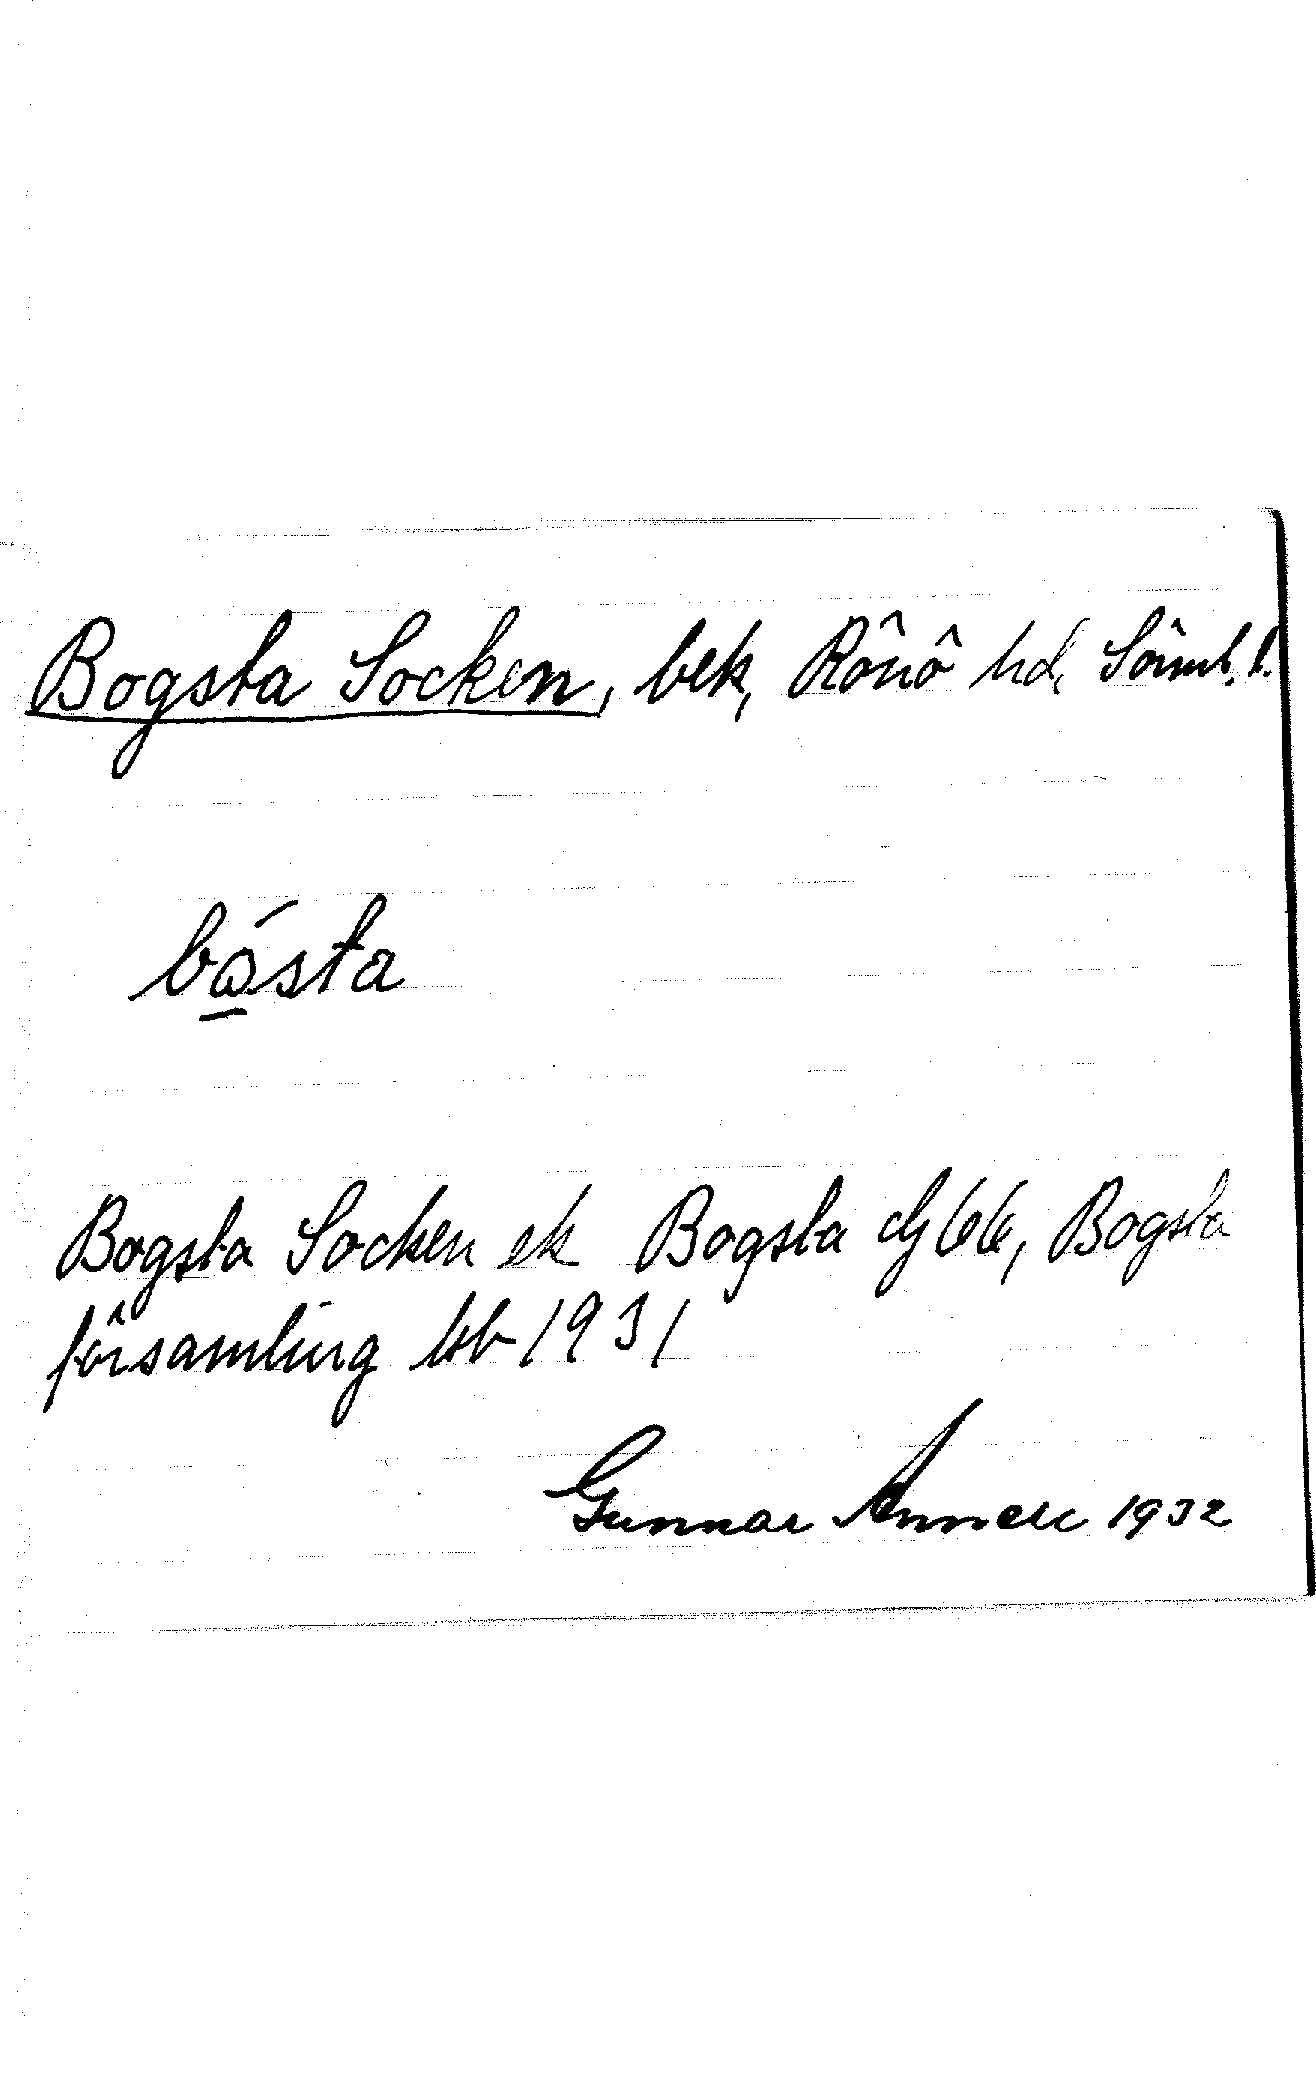 Bogsta Socken, bek, Rônô hd, Sôrml. l.
bósta
Bogsta Socken ek Bogsta dj 66, Bogsta
församling kb 1931
Gunnar Annell 1932